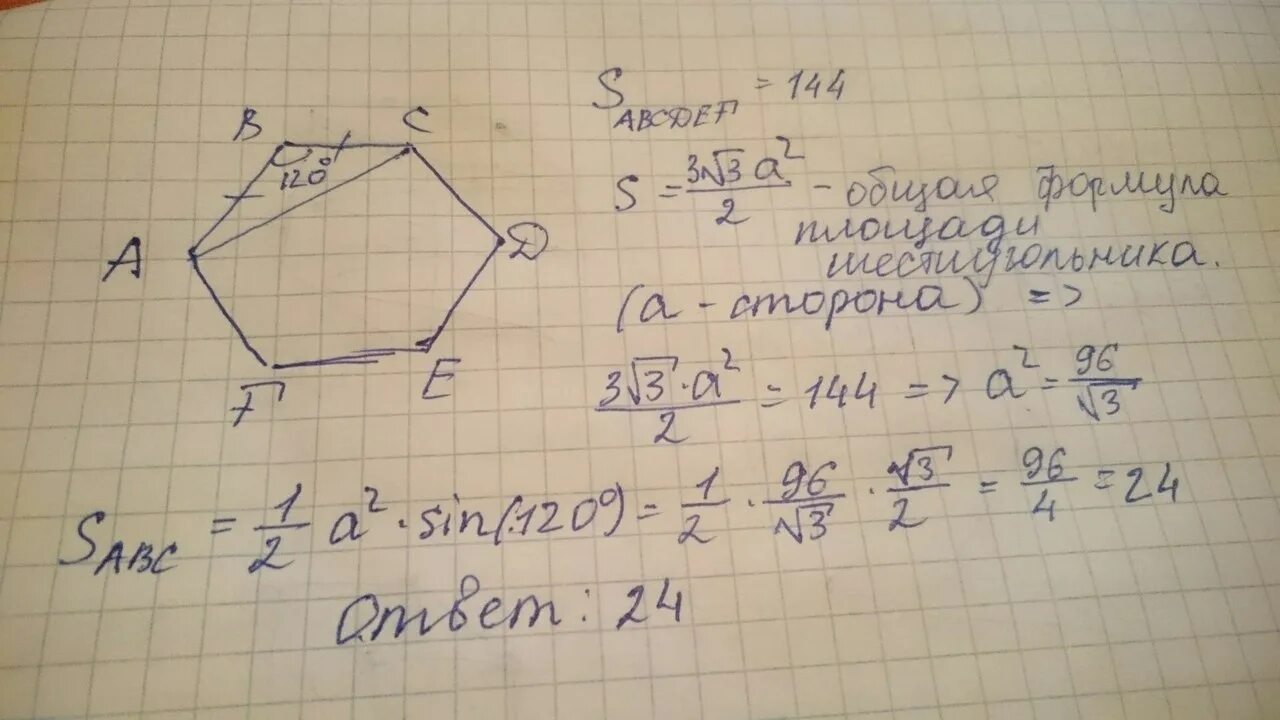 B C
120°
A D
F E
S_ABCDEF = 144
S = 3√3 a² / 2 - общая формула
площади
шестиугольника.
(a - сторона) =>
3√3 · a² / 2 = 144 => a² = 96 / √3
S_ABC = 1/2 a² · sin(120°) = 1/2 · 96/√3 · √3/2 = 96/4 = 24
Ответ: 24